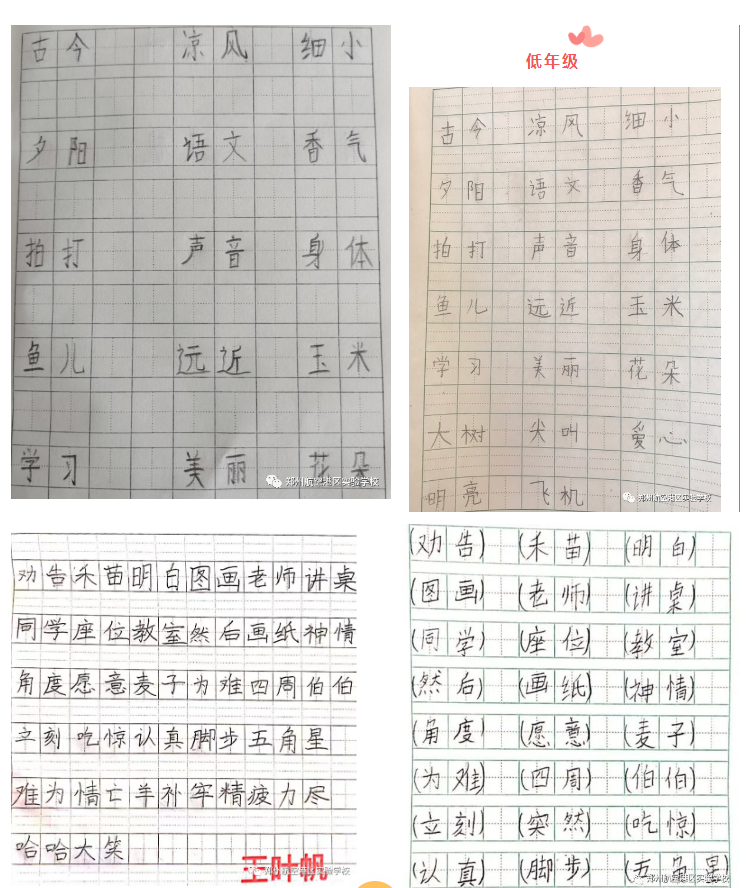 古今 凉风 细小
夕阳 语文 香气
拍打 声音 身体
鱼儿 远近 玉米
学习 美丽 花朵
郑州航空港区实验学校
低年级
古今 凉风 细小
夕阳 语文 香气
拍打 声音 身体
鱼儿 远近 玉米
学习 美丽 花朵
大树 尖叫 爱心
明亮 飞机
郑州航空港区实验学校
劝告禾苗明白图画老师讲桌
同学座位教室然后画纸神情
角度愿意麦子为难四周伯伯
立刻吃惊认真脚步五角星
难为情亡羊补牢精疲力尽
哈哈大笑
王叶帆
郑州航空港区实验学校
(劝告) (禾苗) (明白)
(图画) (老师) (讲桌)
(同学) (座位) (教室)
(然后) (画纸) (神情)
(角度) (愿意) (麦子)
(为难) (四周) (伯伯)
(立刻) (突然) (吃惊)
(认真) (脚步) (五角星
郑州航空港区实验学校